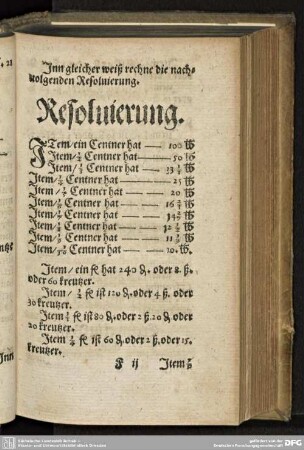 Jnn gleicher weiß rechne die nach-
uolgenden Resoluierung.
Resoluierung.
JTem/ein Centner hat — 100 ℔
Jtem/ ½ Centner hat — 50 ℔
Jtem/ ⅓ Centner hat — 33 ⅓ ℔
Jtem/ ¼ Centner hat — 25 ℔
Jtem/ ⅕ Centner hat — 20 ℔
Jtem/ ⅙ Centner hat — 16 ⅔ ℔
Jtem/ ⅐ Centner hat — 14 2/7 ℔
Jtem/ ⅛ Centner hat — 12 ½ ℔
Jtem/ ⅑ Centner hat — 11 ⅑ ℔
Jtem/ 1/10 Centner hat — 10. ℔.
Jtem/ ein fl hat 240 ₰. oder 8. ß.
oder 60 kreutzer.
Jtem/ ½ fl ist 120 ₰. oder 4 ß. oder
30 kreutzer.
Jtem ⅓ fl ist 80 ₰. oder 2 ß. 20 ₰. oder
20 kreutzer.
Jtem ¼ fl ist 60 ₰. oder 2 ß. oder 15.
kreutzer.
F ij Jtem